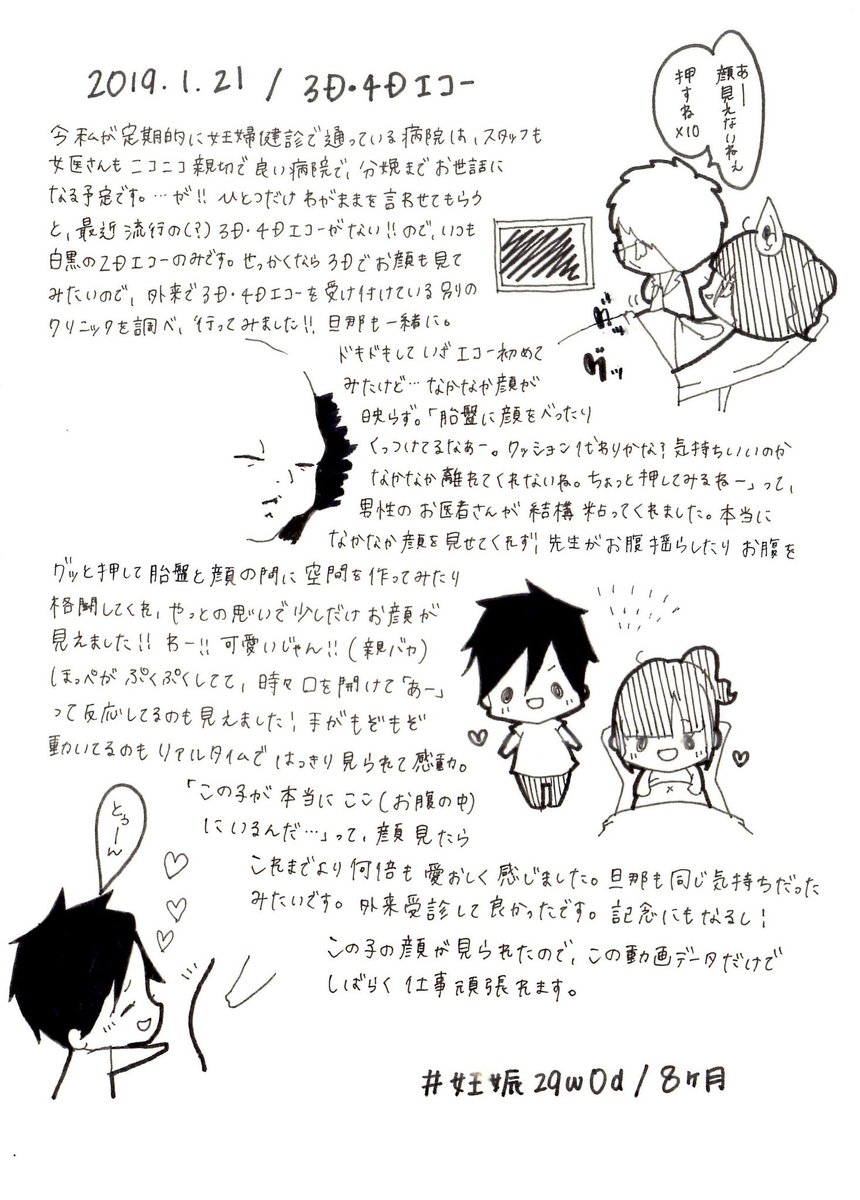 2019.1.21 / 3D・4Dエコー
あー
顔見えないねぇ
押すね
×10
今私が定期的に妊婦健診で通っている病院は、スタッフも
女医さんもニコニコ親切で良い病院で、分娩までお世話に
なる予定です。…が!! ひとつだけわがままを言わせてもらう
と、最近流行の(?)3D・4Dエコーがない!!ので、いつも
白黒の2Dエコーのみです。せっかくなら3Dでお顔も見て
みたいので、外来で3D・4Dエコーを受け付けている別の
クリニックを調べ、行ってみました!! 旦那も一緒に。
グッ
グッ
ドキドキしていざエコー初めて
みたけど…なかなか顔が
映らず。「胎盤に顔をべったり
くっつけてるなあー。クッション代わりかな?気持ちいいのか
なかなか離れてくれないね。ちょっと押してみるねー」って、
男性のお医者さんが結構粘ってくれました。本当に
なかなか顔を見せてくれず、先生がお腹揺らしたりお腹を
グッと押して胎盤と顔の間に空間を作ってみたり
格闘してくれ、やっとの思いで少しだけお顔が
見えました!! わー!! 可愛いじゃん!!(親バカ)
ほっぺがぷくぷくしてて、時々口を開けて「あー」
って反応してるのも見えました!手がもぞもぞ
動いてるのもリアルタイムではっきり見られて感動。
「この子が本当にここ(お腹の中)
にいるんだ…」って、顔見たら
これまでより何倍も愛おしく感じました。旦那も同じ気持ちだった
みたいです。外来受診して良かったです。記念にもなるし!
この子の顔が見られたので、この動画データだけで
しばらく仕事頑張れます。
とぅーん
#妊娠29w0d/8ヶ月